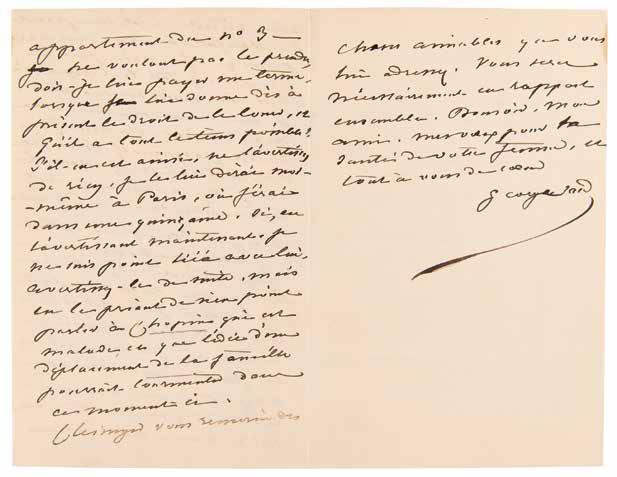 appartement du no 3
ne voulant pas le prendre,
dois-je lui payer un terme,
lorsque je lui donne dès à
présent le droit de le louer, et
qu'il a tout le tems possible?
S'il en est ainsi, ne l'avertissez
de rien, je le lui dirai moi-
-même à Paris, où je serai
dans une quinzaine. Si, en
l'avertissant maintenant, je
ne suis point liée avec lui,
avertissez-le de suite, mais
en le priant de ne point
parler à Chopin qui est
malade, et que l'idée d'un
déplacement de la famille
pourrait tourmenter dans
ce moment ci.
Clésinger vous remercie des
choses aimables que vous
lui adressez. Vous serez
nécessairement en rapport
ensemble. Bonsoir, mon
ami, mes vœux pour la
santé de votre femme, et
tout à vous de cœur
George Sand